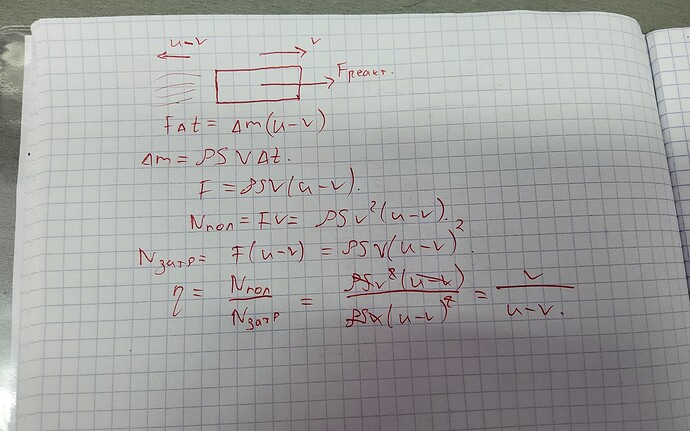 u-v v
Fреакт.
FΔt = Δm(u-v)
Δm = ρSVΔt.
F = ρSv(u-v).
Nпол = Fv = ρSv²(u-v).
Nзатр = F(u-v) = ρSv(u-v)²
η = Nпол / Nзатр = ρSv²(u-v) / ρSv(u-v)² = v / u-v.